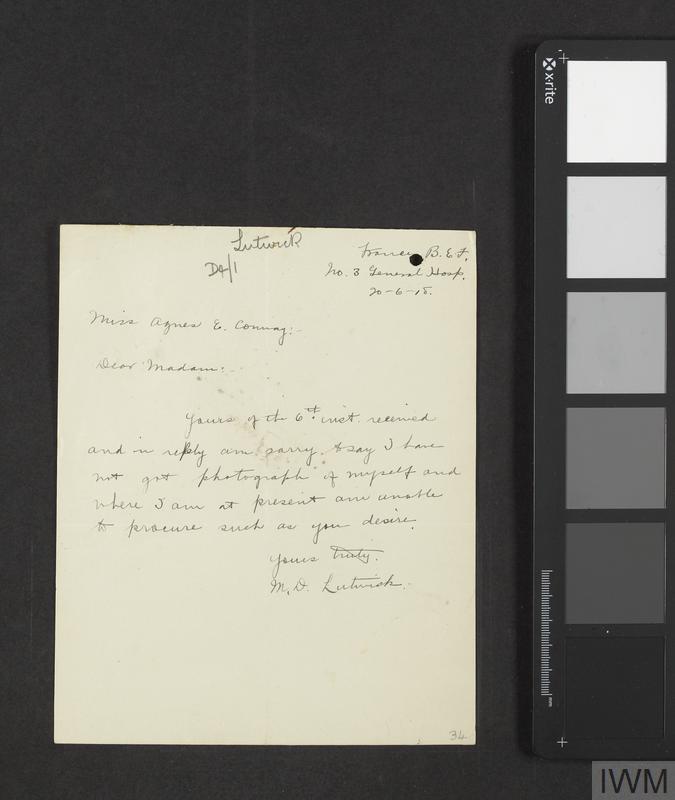 Lutwick
D4/1
France, B.E.F.
No. 3 General Hosp.
20-6-18.
Miss Agnes E. Conway:-
Dear Madam:-
Yours of the 6th inst. received
and in reply am sorry to say I have
not got photograph of myself and
where I am at present am unable
to procure such as you desire.
Yours truly.
M. D. Lutwick.
34
x-rite
mm
IWM